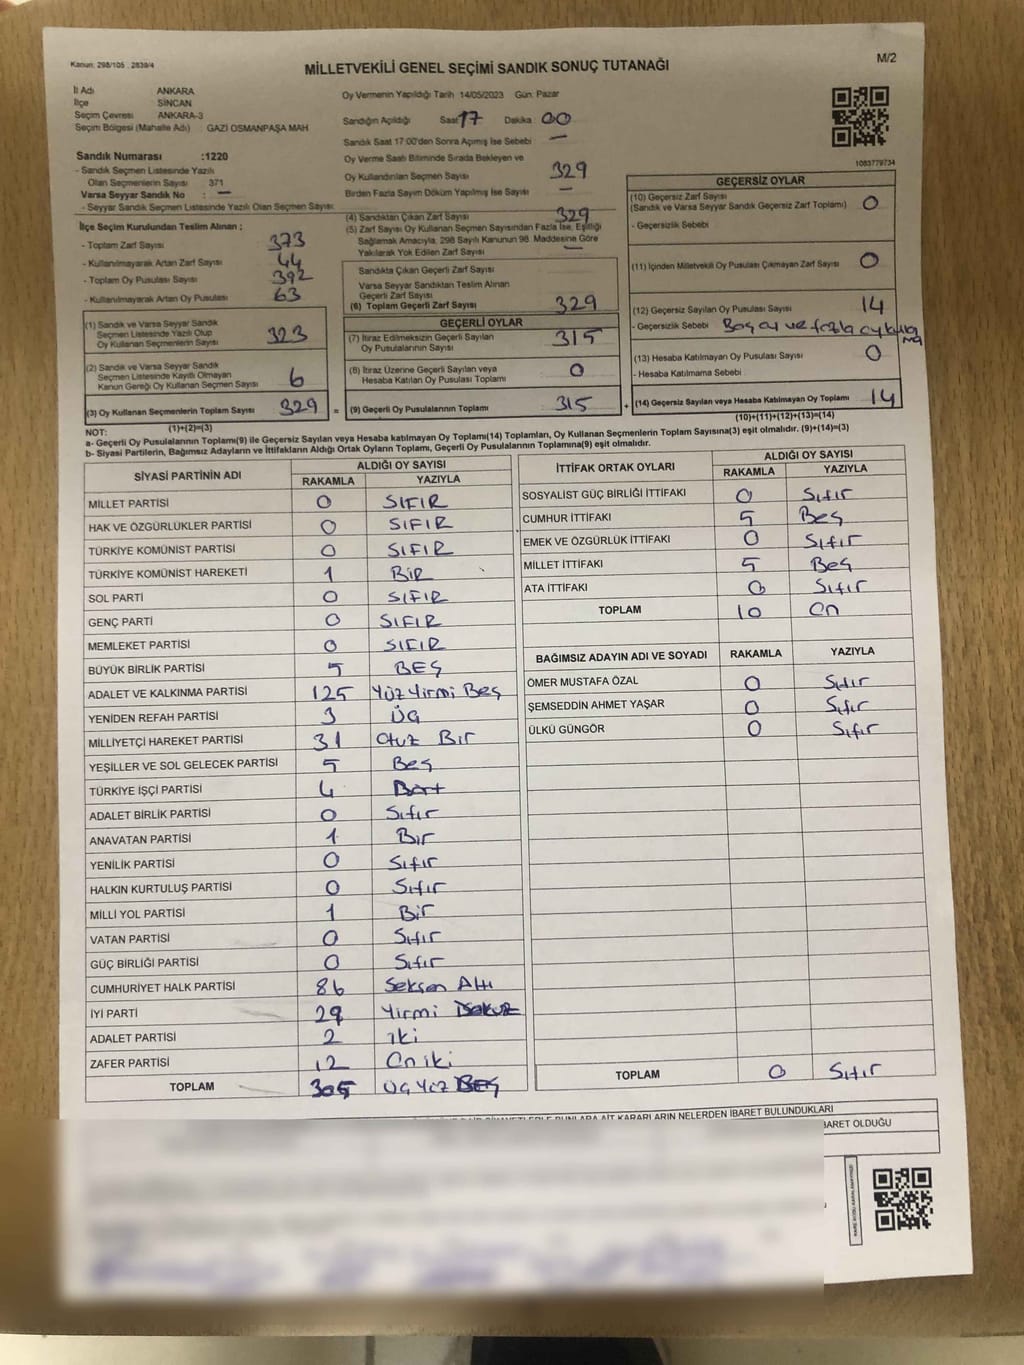 Kanun: 298/105 , 2839/4
M/2
MİLLETVEKİLİ GENEL SEÇİMİ SANDIK SONUÇ TUTANAĞI
İl Adı ANKARA
İlçe SİNCAN
Seçim Çevresi ANKARA-3
Seçim Bölgesi (Mahalle Adı) : GAZİ OSMANPAŞA MAH
Sandık Numarası :1220
- Sandık Seçmen Listesinde Yazılı
Olan Seçmenlerin Sayısı 371
Varsa Seyyar Sandık No : —
- Seyyar Sandık Seçmen Listesinde Yazılı Olan Seçmen Sayısı:
İlçe Seçim Kurulundan Teslim Alınan ;
- Toplam Zarf Sayısı 373
- Kullanılmayarak Artan Zarf Sayısı 44
- Toplam Oy Pusulası Sayısı 392
- Kullanılmayarak Artan Oy Pusulası 63
(1) Sandık ve Varsa Seyyar Sandık
Seçmen Listesinde Yazılı Olup
Oy Kullanan Seçmenlerin Sayısı 323
(2) Sandık ve Varsa Seyyar Sandık
Seçmen Listesinde Kayıtlı Olmayan
Kanun Gereği Oy Kullanan Seçmen Sayısı 6
(3) Oy Kullanan Seçmenlerin Toplam Sayısı 329 =
(1)+(2)=(3)
Oy Vermenin Yapıldığı Tarih 14/05/2023 Gün: Pazar
Sandığın Açıldığı Saat 17 Dakika 00
Sandık Saat 17:00'den Sonra Açımış İse Sebebi —
Oy Verme Saati Bitiminde Sırada Bekleyen ve
Oy Kullandırılan Seçmen Sayısı 329
Birden Fazla Sayım Döküm Yapılmış İse Sayısı —
(4) Sandıktan Çıkan Zarf Sayısı 329
(5) Zarf Sayısı Oy Kullanan Seçmen Sayısından Fazla İse, Eşitliği
Sağlamak Amacıyla, 298 Sayılı Kanunun 98. Maddesine Göre
Yakılarak Yok Edilen Zarf Sayısı —
Sandıkta Çıkan Geçerli Zarf Sayısı
Varsa Seyyar Sandıktan Teslim Alınan
Geçerli Zarf Sayısı
(6) Toplam Geçerli Zarf Sayısı 329
GEÇERLİ OYLAR
(7) İtiraz Edilmeksizin Geçerli Sayılan
Oy Pusulalarının Sayısı 315
(8) İtiraz Üzerine Geçerli Sayılan veya
Hesaba Katılan Oy Pusulası Toplamı 0
(9) Geçerli Oy Pusulalarının Toplamı 315 +
1083779734
GEÇERSİZ OYLAR
(10) Geçersiz Zarf Sayısı
(Sandık ve Varsa Seyyar Sandık Geçersiz Zarf Toplamı) 0
- Geçersizlik Sebebi
(11) İçinden Milletvekili Oy Pusulası Çıkmayan Zarf Sayısı 0
(12) Geçersiz Sayılan Oy Pusulası Sayısı 14
- Geçersizlik Sebebi Boş oy ve fazla oy
(13) Hesaba Katılmayan Oy Pusulası Sayısı 0
- Hesaba Katılmama Sebebi
(14) Geçersiz Sayılan veya Hesaba Katılmayan Oy Toplamı 14
(10)+(11)+(12)+(13)=(14)
NOT:
a- Geçerli Oy Pusulalarının Toplamı(9) ile Geçersiz Sayılan veya Hesaba katılmayan Oy Toplamı(14) Toplamları, Oy Kullanan Seçmenlerin Toplam Sayısına(3) eşit olmalıdır. (9)+(14)=(3)
b- Siyasi Partilerin, Bağımsız Adayların ve İttifakların Aldığı Ortak Oyların Toplamı, Geçerli Oy Pusulalarının Toplamına(9) eşit olmalıdır.
SİYASİ PARTİNİN ADI ALDIĞI OY SAYISI
RAKAMLA YAZIYLA
MİLLET PARTİSİ 0 SIFIR
HAK VE ÖZGÜRLÜKLER PARTİSİ 0 SIFIR
TÜRKİYE KOMÜNİST PARTİSİ 0 SIFIR
TÜRKİYE KOMÜNİST HAREKETİ 1 BİR
SOL PARTİ 0 SIFIR
GENÇ PARTİ 0 SIFIR
MEMLEKET PARTİSİ 0 SIFIR
BÜYÜK BİRLİK PARTİSİ 5 BEŞ
ADALET VE KALKINMA PARTİSİ 125 Yüz Yirmi Beş
YENİDEN REFAH PARTİSİ 3 ÜÇ
MİLLİYETÇİ HAREKET PARTİSİ 31 Otuz Bir
YEŞİLLER VE SOL GELECEK PARTİSİ 5 Beş
TÜRKİYE İŞÇİ PARTİSİ 4
ADALET BİRLİK PARTİSİ 0 Sıfır
ANAVATAN PARTİSİ 1 Bir
YENİLİK PARTİSİ 0 Sıfır
HALKIN KURTULUŞ PARTİSİ 0 Sıfır
MİLLİ YOL PARTİSİ 1 Bir
VATAN PARTİSİ 0 Sıfır
GÜÇ BİRLİĞİ PARTİSİ 0 Sıfır
CUMHURİYET HALK PARTİSİ 86 Seksen Altı
İYİ PARTİ 29 Yirmi Dokuz
ADALET PARTİSİ 2 iki
ZAFER PARTİSİ 12 On iki
TOPLAM 305 Üç Yüz BEŞ
İTTİFAK ORTAK OYLARI ALDIĞI OY SAYISI
RAKAMLA YAZIYLA
SOSYALİST GÜÇ BİRLİĞİ İTTİFAKI 0 Sıfır
CUMHUR İTTİFAKI 5 Beş
EMEK VE ÖZGÜRLÜK İTTİFAKI 0 Sıfır
MİLLET İTTİFAKI 5 Beş
ATA İTTİFAKI 0 Sıfır
TOPLAM 10 On
BAĞIMSIZ ADAYIN ADI VE SOYADI RAKAMLA YAZIYLA
ÖMER MUSTAFA ÖZAL 0 Sıfır
ŞEMSEDDİN AHMET YAŞAR 0 Sıfır
ÜLKÜ GÜNGÖR 0 Sıfır
TOPLAM 0 Sıfır
BUNLARA AİT KARARLARIN NELERDEN İBARET BULUNDUKLARI
BARET OLDUĞU